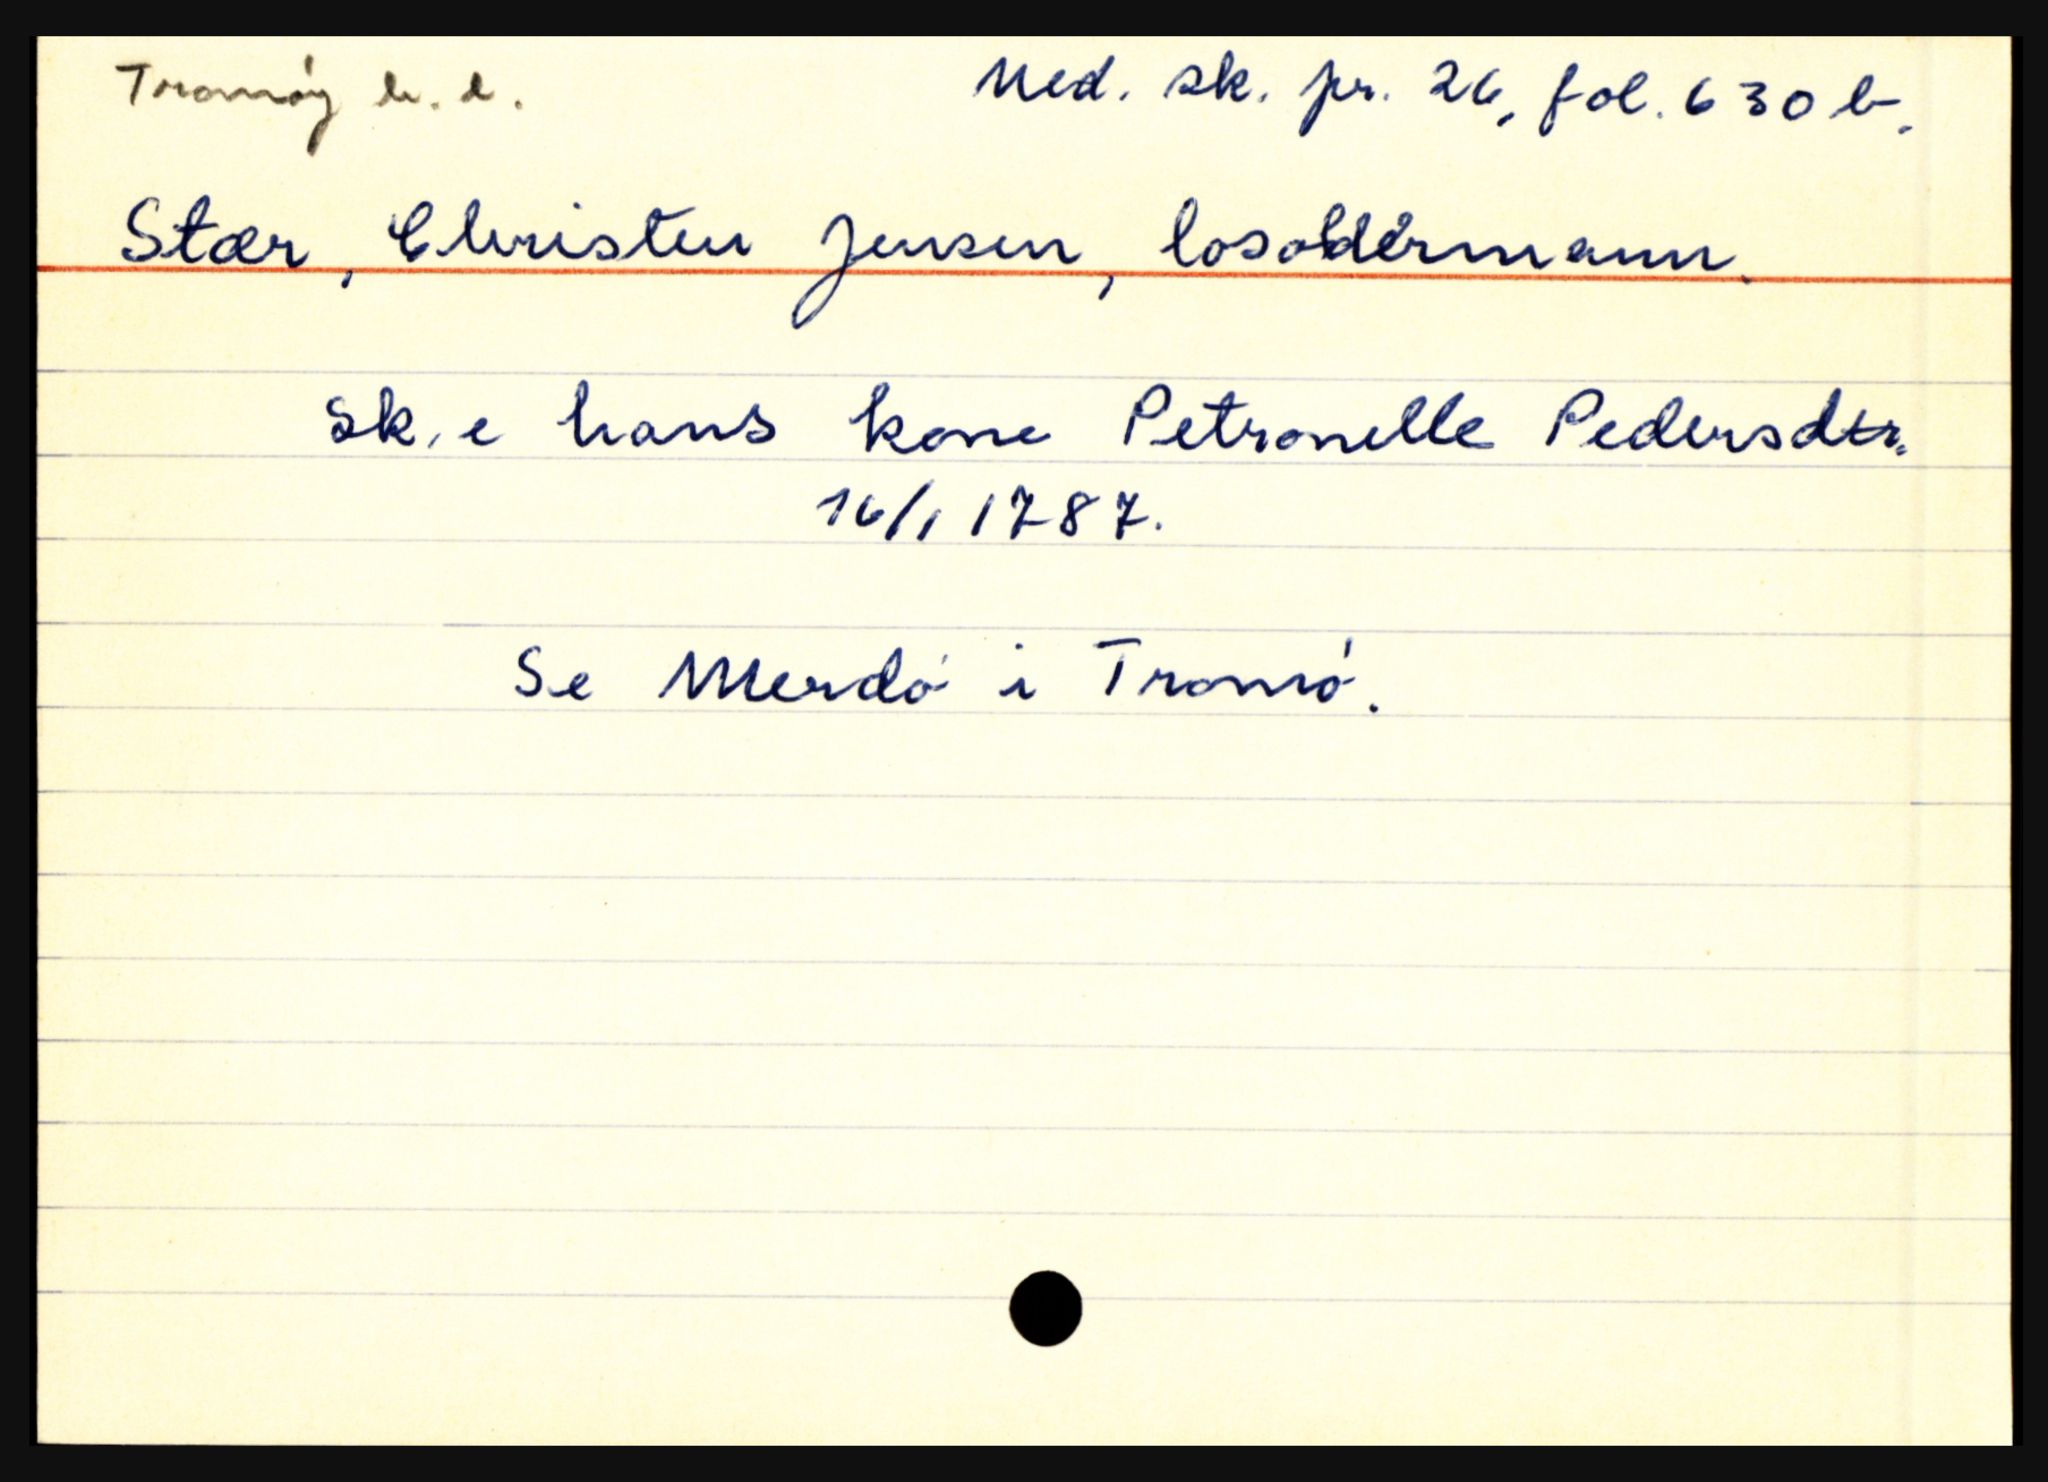 Tromøy h. d. Ned. sk. pr. 26, fol. 630 b.
Stær, Christen Jensen, losoldermann.
sk. e hans kone Petronelle Pedersdtr.
16/1 1787.
Se Merdø i Tromø.